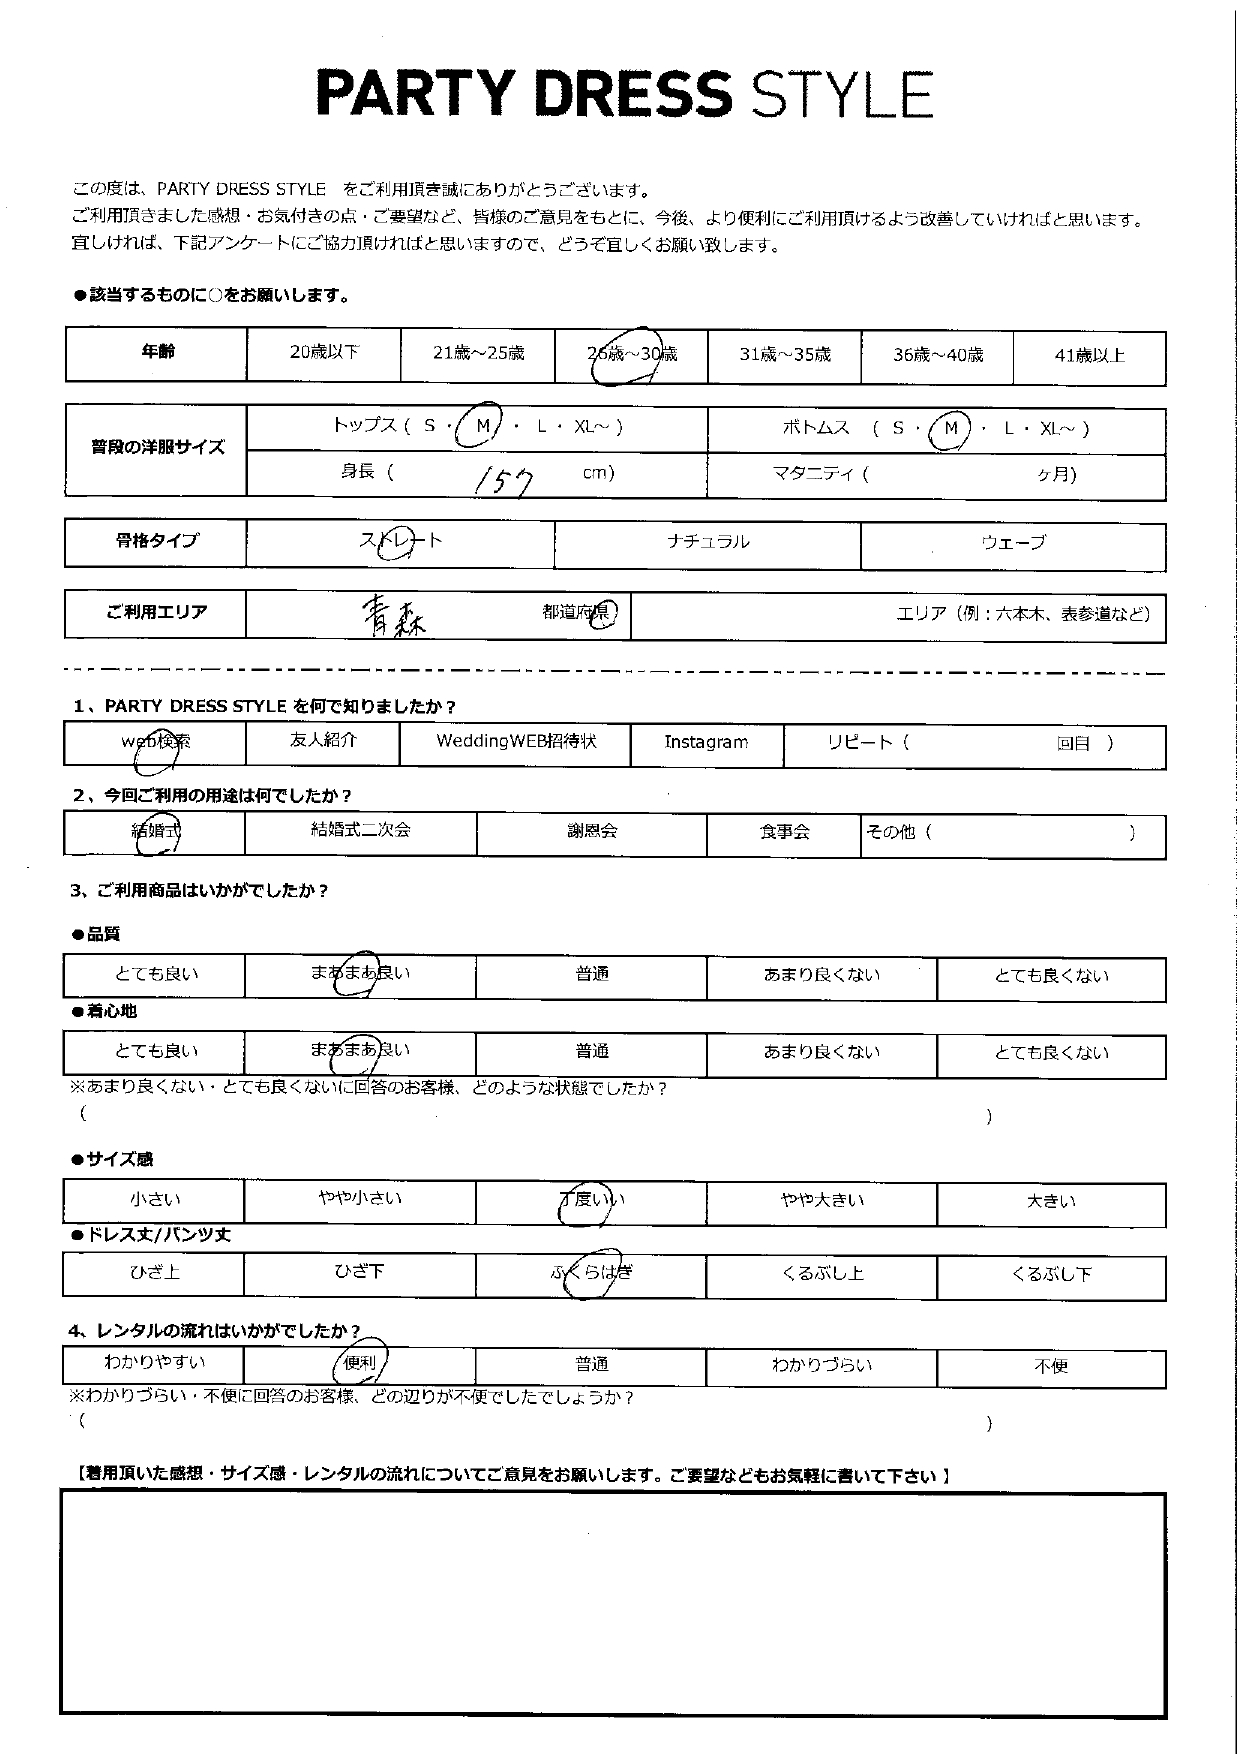 PARTY DRESS STYLE
この度は、PARTY DRESS STYLE をご利用頂き誠にありがとうございます。
ご利用頂きました感想・お気付きの点・ご要望など、皆様のご意見をもとに、今後、より便利にご利用頂けるよう改善していければと思います。
宜しければ、下記アンケートにご協力頂ければと思いますので、どうぞ宜しくお願い致します。
●該当するものに○をお願いします。
年齢 20歳以下 21歳～25歳 26歳～30歳 31歳～35歳 36歳～40歳 41歳以上
普段の洋服サイズ トップス ( S ・ M ・ L ・ XL～ ) ボトムス ( S ・ M ・ L ・ XL～ )
身長 ( 157 cm) マタニティ ( ヶ月)
骨格タイプ ストレート ナチュラル ウェーブ
ご利用エリア 青森 都道府県 エリア（例：六本木、表参道など）
1、PARTY DRESS STYLE を何で知りましたか？
web検索 友人紹介 WeddingWEB招待状 Instagram リピート ( 回目 )
2、今回ご利用の用途は何でしたか？
結婚式 結婚式二次会 謝恩会 食事会 その他 ( )
3、ご利用商品はいかがでしたか？
●品質
とても良い まあまあ良い 普通 あまり良くない とても良くない
●着心地
とても良い まあまあ良い 普通 あまり良くない とても良くない
※あまり良くない・とても良くないに回答のお客様、どのような状態でしたか？
( )
●サイズ感
小さい やや小さい 丁度いい やや大きい 大きい
●ドレス丈/パンツ丈
ひざ上 ひざ下 ふくらはぎ くるぶし上 くるぶし下
4、レンタルの流れはいかがでしたか？
わかりやすい 便利 普通 わかりづらい 不便
※わかりづらい・不便に回答のお客様、どの辺りが不便でしたでしょうか？
( )
【着用頂いた感想・サイズ感・レンタルの流れについてご意見をお願いします。ご要望などもお気軽に書いて下さい】